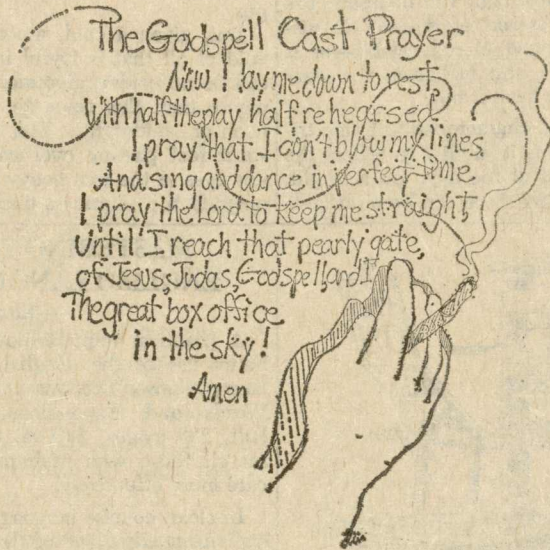 The Godspell Cast Prayer
Now I lay me down to rest,
With half the play half rehearsed
I pray that I don't blow my lines
And sing and dance in perfect time
I pray the Lord to keep me straight
Until I reach that pearly gate,
of Jesus, Judas, Godspell, and I
The great box office
in the sky!
Amen